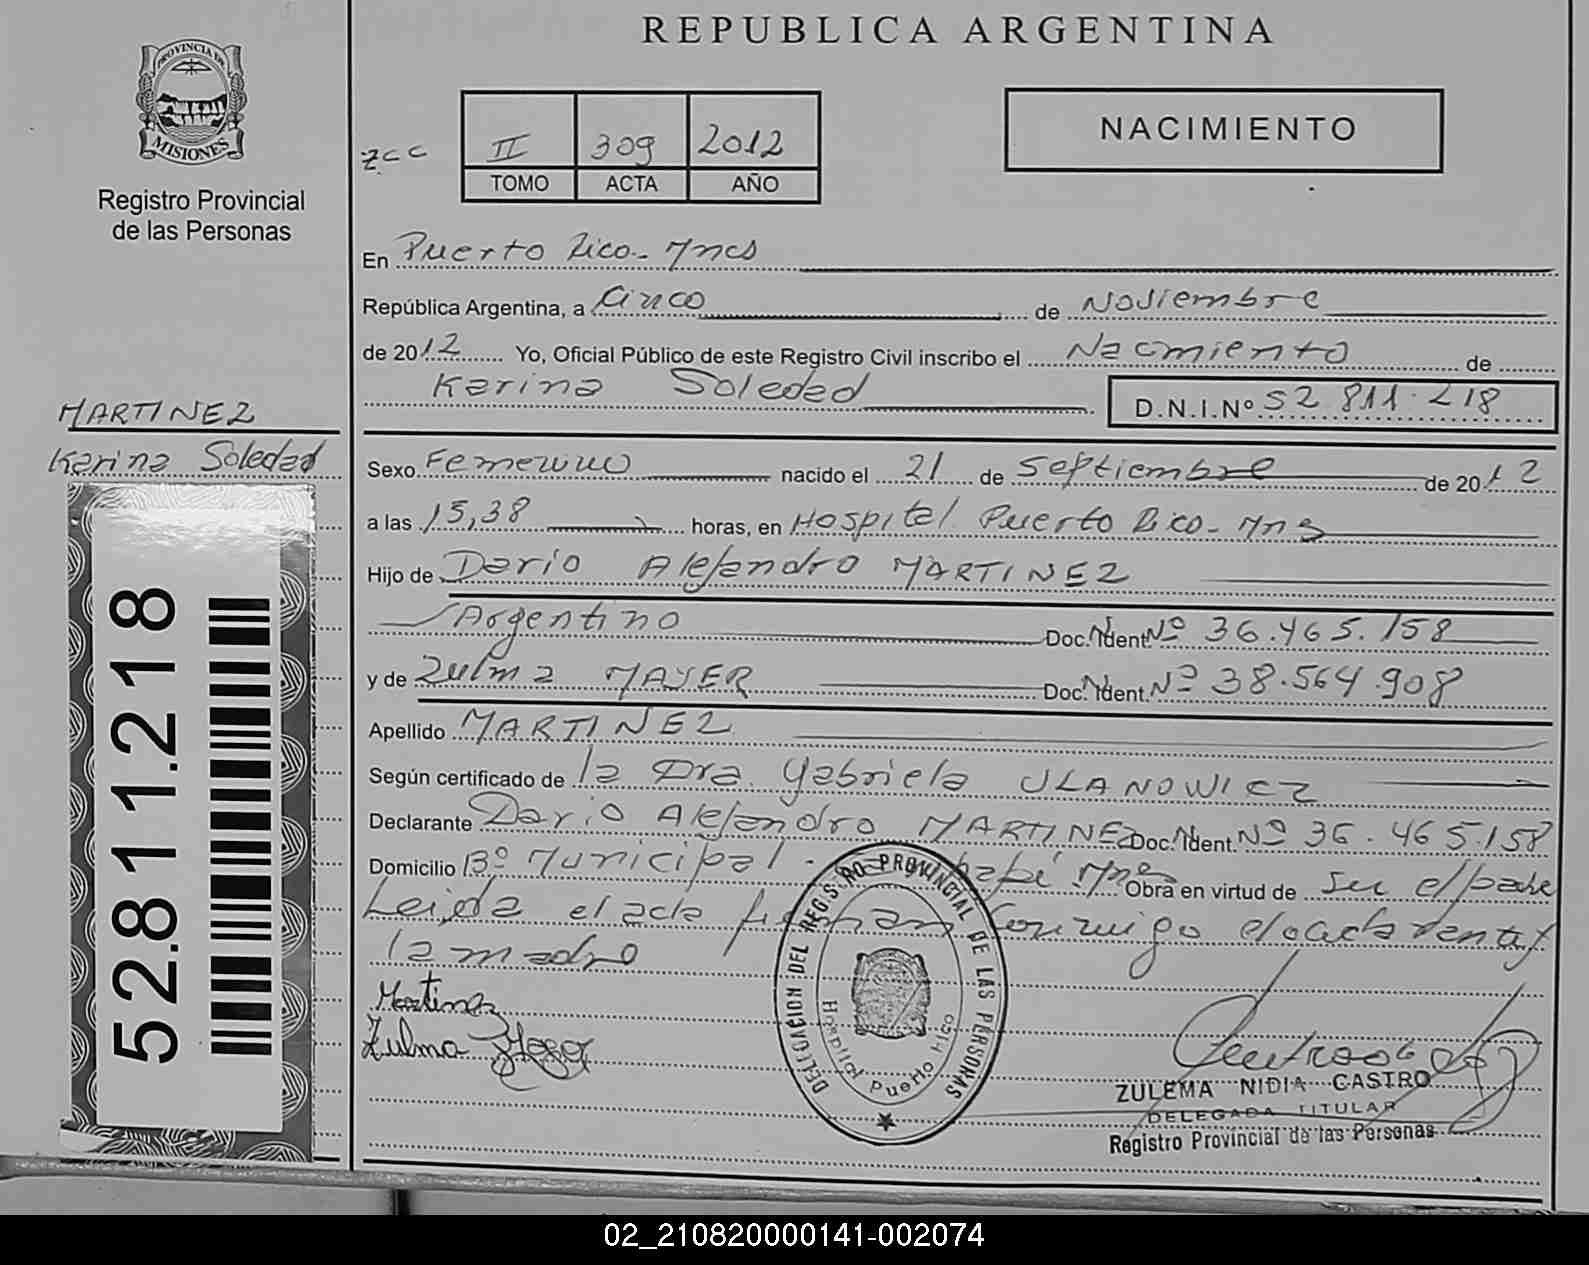 REPUBLICA ARGENTINA
PROVINCIA DE
MISIONES
Registro Provincial
de las Personas
NACIMIENTO
zcc II 309 2012
TOMO ACTA AÑO
En Puerto Rico - Mnes
República Argentina, a Cinco de Noviembre
de 2012 Yo, Oficial Público de este Registro Civil inscribo el Nacimiento de
Karina Soledad D.N.I.Nº 52 811.218
MARTINEZ
Karina Soledad
Sexo Femenino nacido el 21 de Septiembre de 2012
a las 15,38 horas, en Hospital Puerto Rico - Mns
Hijo de Dario Alejandro MARTINEZ
Argentino Doc. Ident. Nº 36.465.158
y de Zulma MAYER Doc. Ident. Nº 38.564.908
Apellido MARTINEZ
Según certificado de la Dra. Gabriela ULANOWICZ
Declarante Dario Alejandro MARTINEZ Doc. Ident. Nº 36.465.158
Domicilio Bº Municipal - Mnes Obra en virtud de ser el padre
Leida el acta firman conmigo el declarante y
la madre
Martinez
Zulma
52.811.218
DELEGACION DEL REG. PROVINCIAL DE LAS PERSONAS
Hospital Puerto Rico
ZULEMA NIDIA CASTRO
DELEGADA TITULAR
Registro Provincial de las Personas
02_210820000141-002074